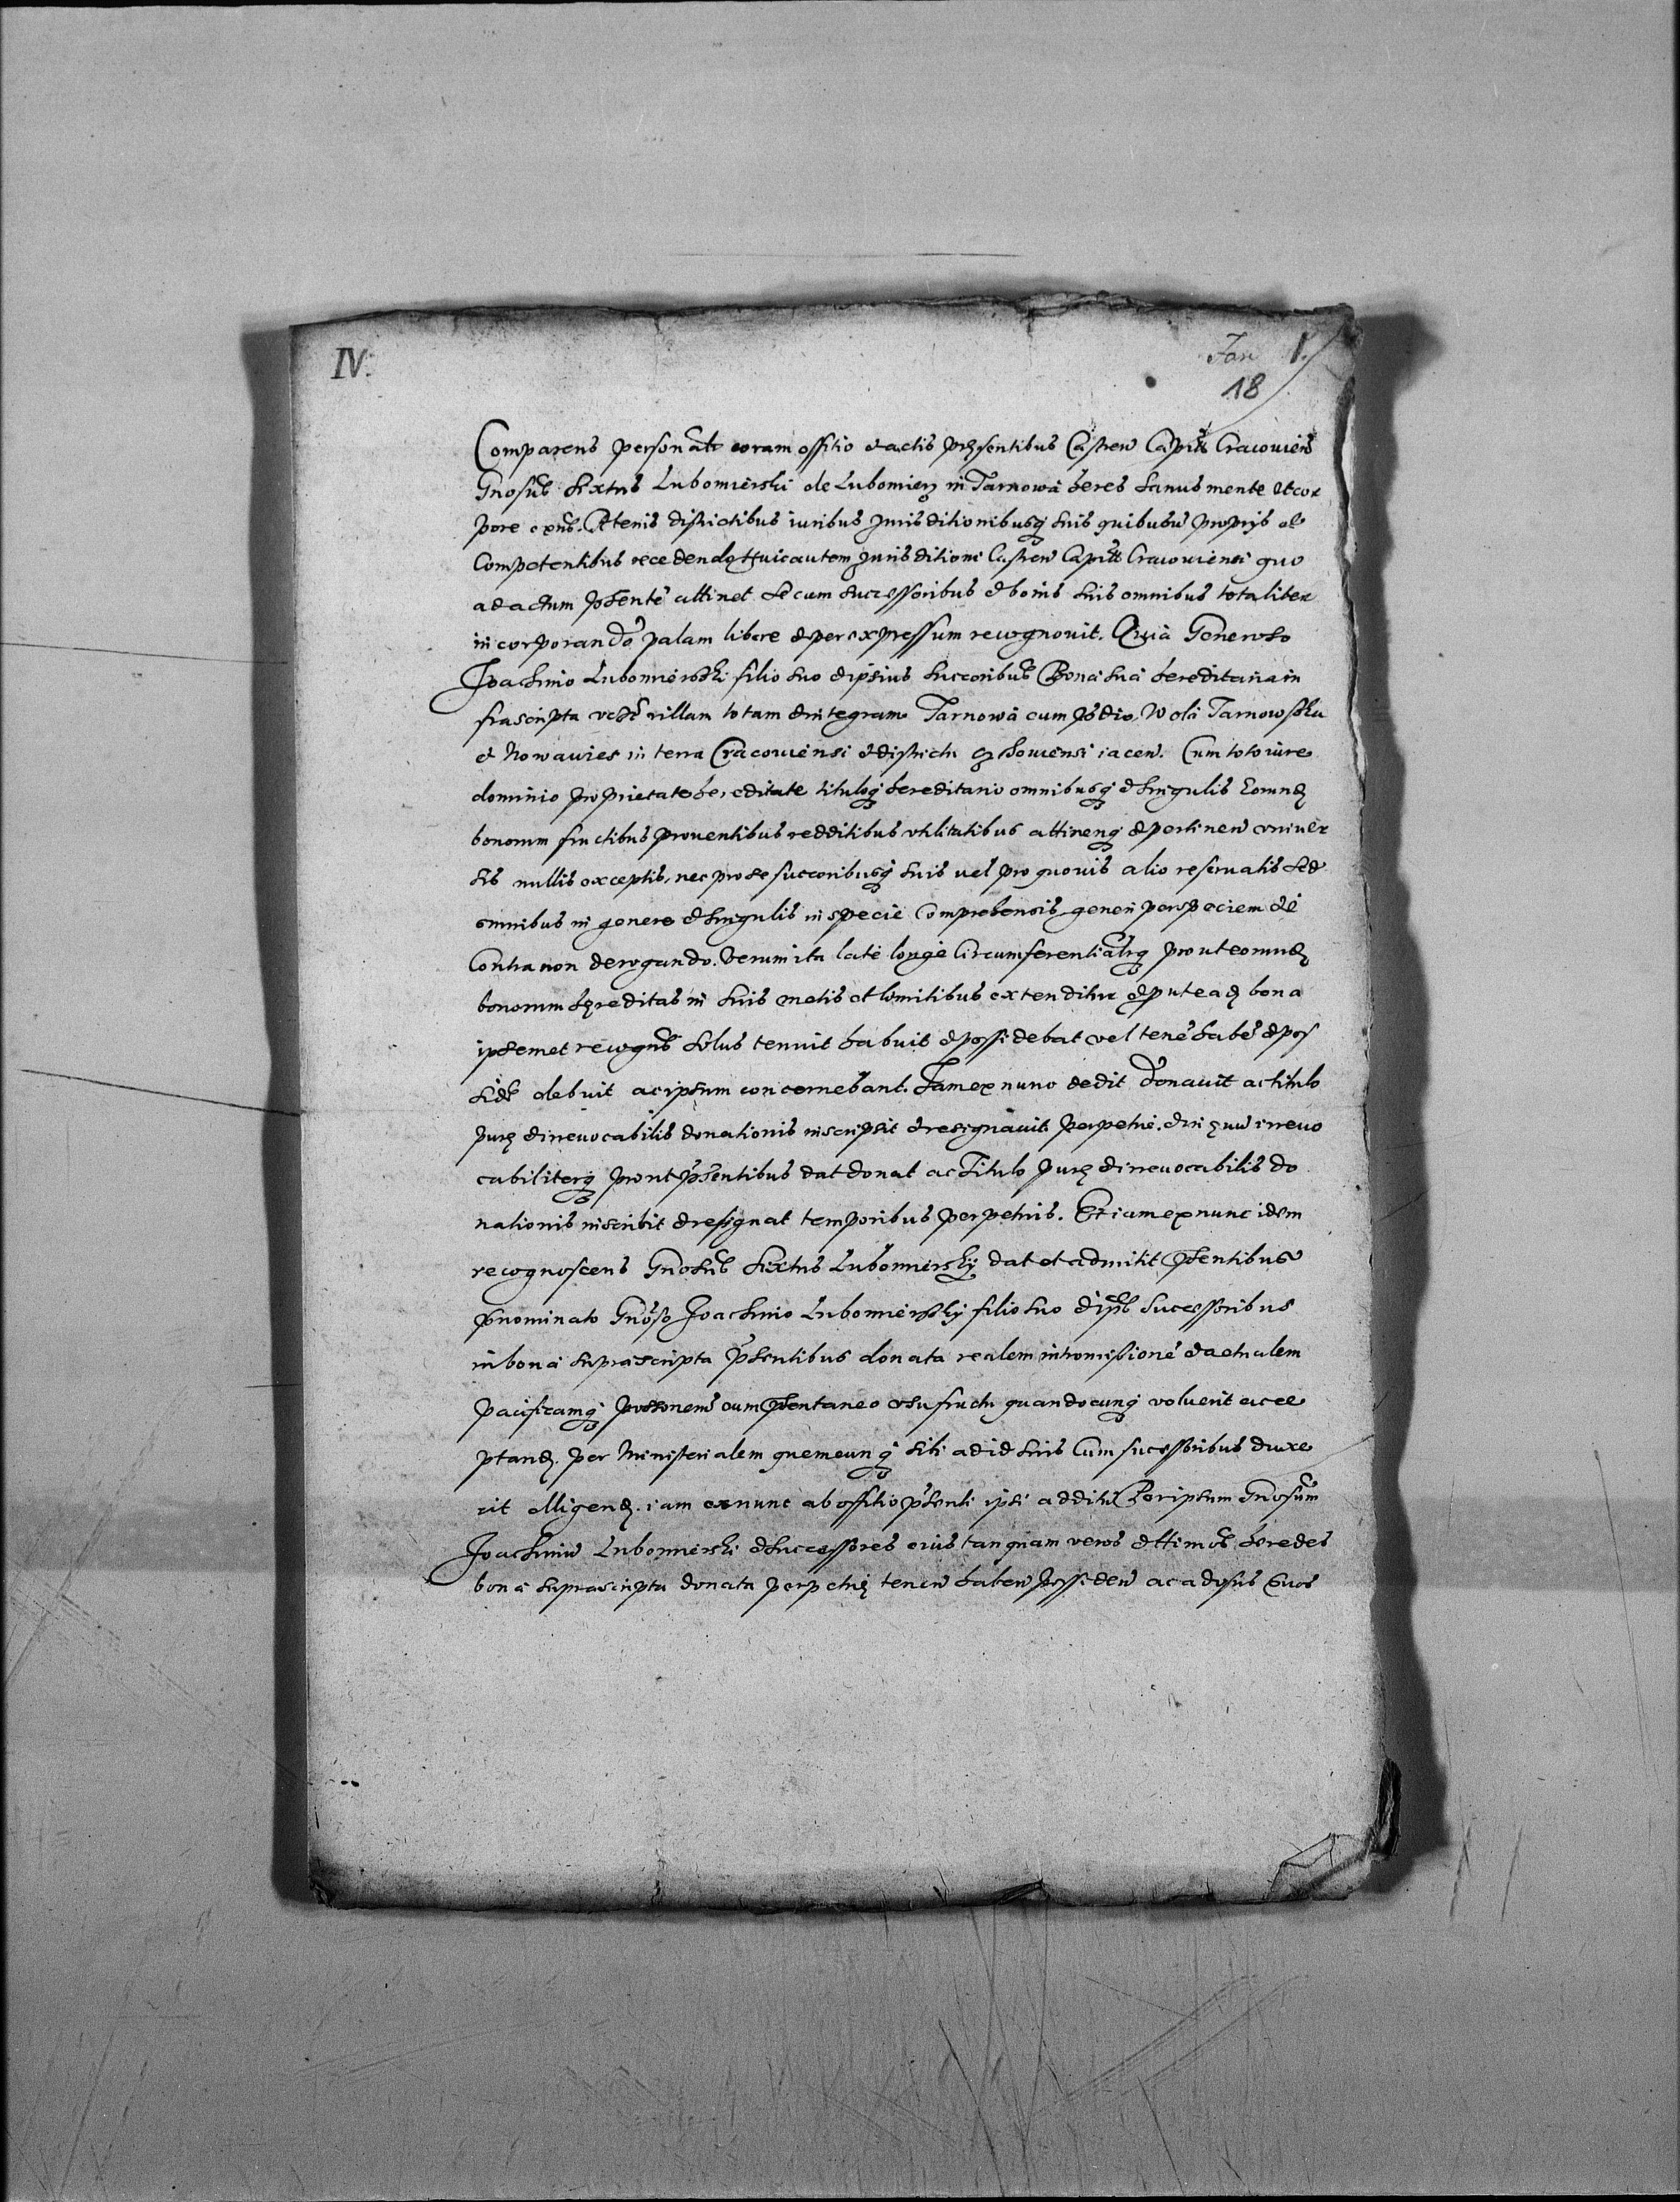 IV.
Jan 1.
18
Comparens personalr coram offitio et actis przsentibus Castren Capitt Cracouien
Gnosus Sixtus Lubomirski de Lubomierz in Tarnowa heres sanus mente et cor
pore exns. A tenis districtibus iuribus jurisditionibusq suis quibusuis proprys et
Competentibus recedendo Huic autem jurisditioni Castren Capitt Cracouiensi quo
ad actum psente attinet se cum successoribus et bonis suis omnibus totaliter
incorporando palam libere et per expressum recognouit. Quia Generoso
Joachimo Lubomirski filio suo et ipsius succoribus Bona sua hereditaria in
frascripta videt villam totam et integram Tarnowa cum pdio, Wola Tarnowska
et Nowawies in terra Cracouiensi et districtu Czchouiensi iacen. Cum toto iure
dominio proprietate hereditate tituloq hereditario omnibusq et singulis Eorund
bonorum fructibus prouentibus redditibus vtilitatibus attinenq et pertinen vniuer
sis nullis exceptis, nec pro se succoribusq suis uel pro quouis alio reseruatis sed
omnibus in genere et singulis in specie Comprehensis generi per speciem et e
Contra non derogando. Verum ita late longe Circumferentialrq prout eorund
bonorum hereditas in suis metis et limitibus extenditur et put ead bona
ipsemet recogns solus tenuit habuit et possidebat vel tene habe et pos
side debuit ac ipsum concernebant. Jam ex nunc dedit donauit ac titulo
pure et irreuocabilis donationis inscripsit et resignauit perpetue. et in eum irreuo
cabiliterq prout psentibus dat donat ac Titulo pure et irreuocabilis do
nationis inscribit et resignat temporibus perpetuis. Et iam ex nunc idem
recognoscens Gnosus Sixtus Lubomirsky dat et admitit psentibus
pnominato Gnoso Joachimo Lubomirsky filio suo et ips sucessoribus
in bona suprascripta psentibus donata realem intromissione et actualem
pacificamq possonem cum psentaneo vsufructu quandocunq voluerit acce
ptand. per Ministerialem quemcunq sibi ad id suis Cum sucessoribus duxe
rit elligend. iam ex nunc ab offitio psenti ipsi additu Per ipsum Gnosum
Joachimu Lubomirski et successores eius tanquam veros et ttimos heredes
bona suprascripta donata perpetue tenen haben possiden ac ad vsus suos